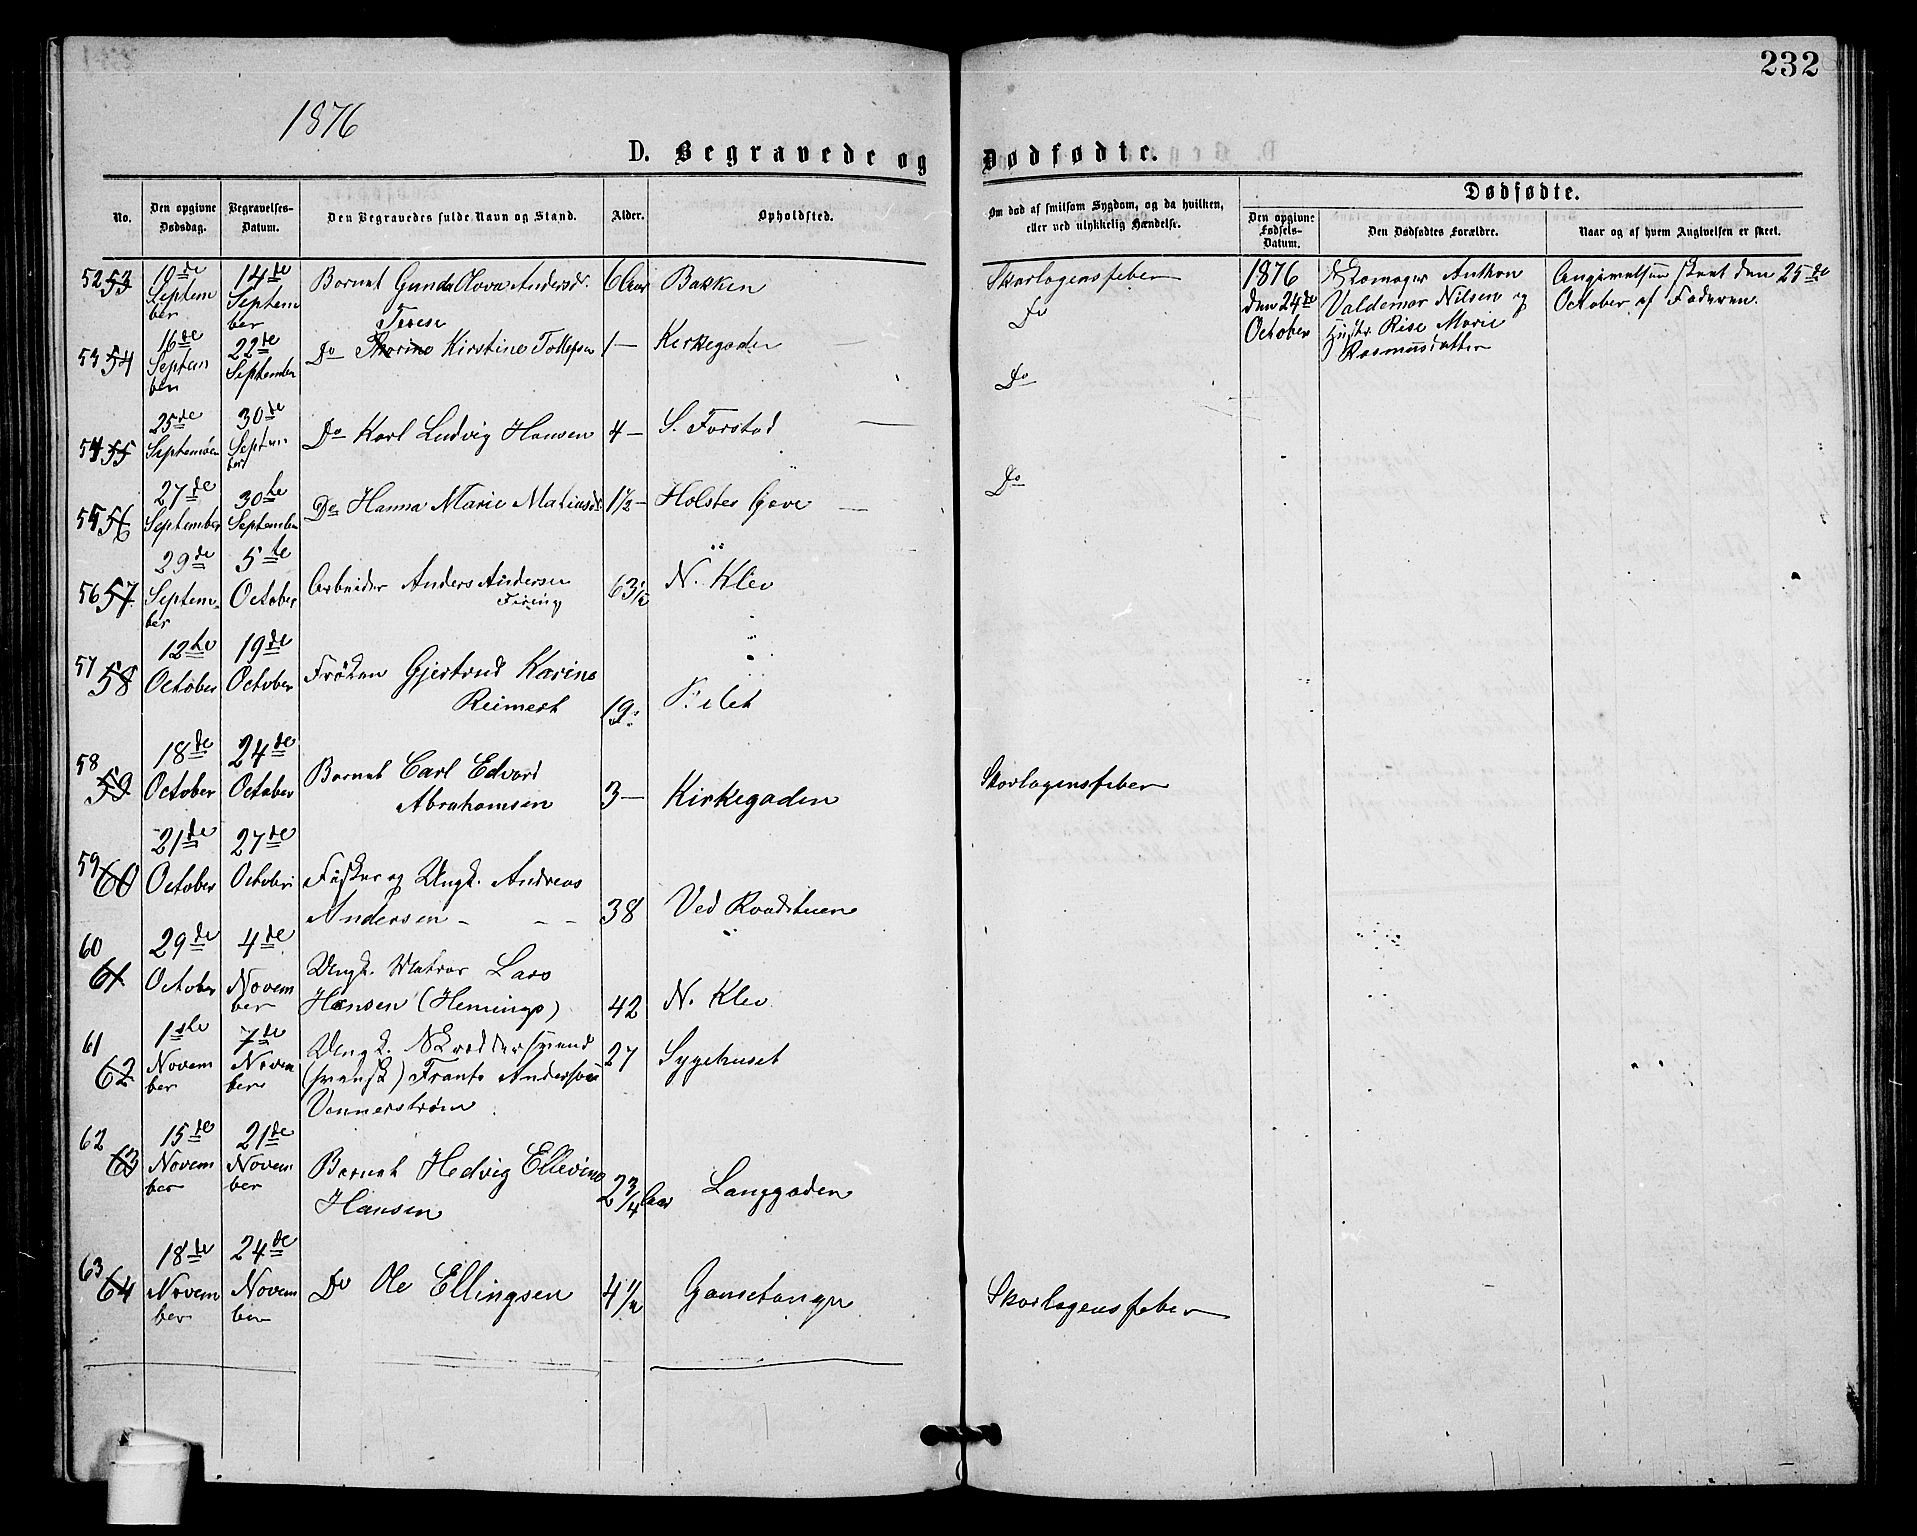 232
1876
D. Begravede og Dødfødte.
No.
Den opgivne Dødsdag.
Begravelses-Datum.
Den Begravedes fulde Navn og Stand.
Alder.
Opholdsted.
Om død af smitsom Sygdom, og da hvilken, eller ved ulykkelig Hændelse.
Dødfødte.
Den opgivne Fødsels-Datum.
Den Dødfødtes Forældre.
Naar og af hvem Angivelsen er skeet.
52 53 10de September 14de September Barnet Gunda Hova Andersdr. 6 Aar Bakken Skarlagensfeber
53 54 16de September 22de September Do Terese Kirstine Tollefsen 1 — Kirkegaden Do
54 55 25de September 30de September Do Karl Ludvig Hansen 4 — S. Forstad Do
55 56 27de September 30te September Do Hanna Marie Matiasdr. 1½ — Holstes Gave Do
56 57 29de September 5te October Arbeider Anders Andersen Firing 63½ N. Klev
57 58 12te October 19de October Frøken Gjertrud Karine Reimert 19 Filet
58 59 18de October 24de October Barnet Carl Edvard Abrahamsen 3 — Kirkegaden Skarlagensfeber
59 60 21de October 27de October Fisker og Ungk. Andreas Andersen 38 Ved Raadstuen
60 61 29de October 4de November Ungk. Matros Lars Hansen (Hemings) 42 N. Klev
61 62 1ste November 7de November Ungk. Skræddersvend (svensk) Frants Andersson Vennerstrøm 27 Sygehuset
62 63 15de November 21de November Barnet Hedvig Ellevine Hansen 2¾ Aar Langgaden
63 64 18de November 24de November Do Ole Ellingsen 4½ Gamletangen Skarlagensfeber
1876 den 24de October
Skomager Anthon
Valdemar Nilsen og
Hustr. Rise Marie
Rasmusdatter
Angivelsen skeet den 25de
October af Faderen.